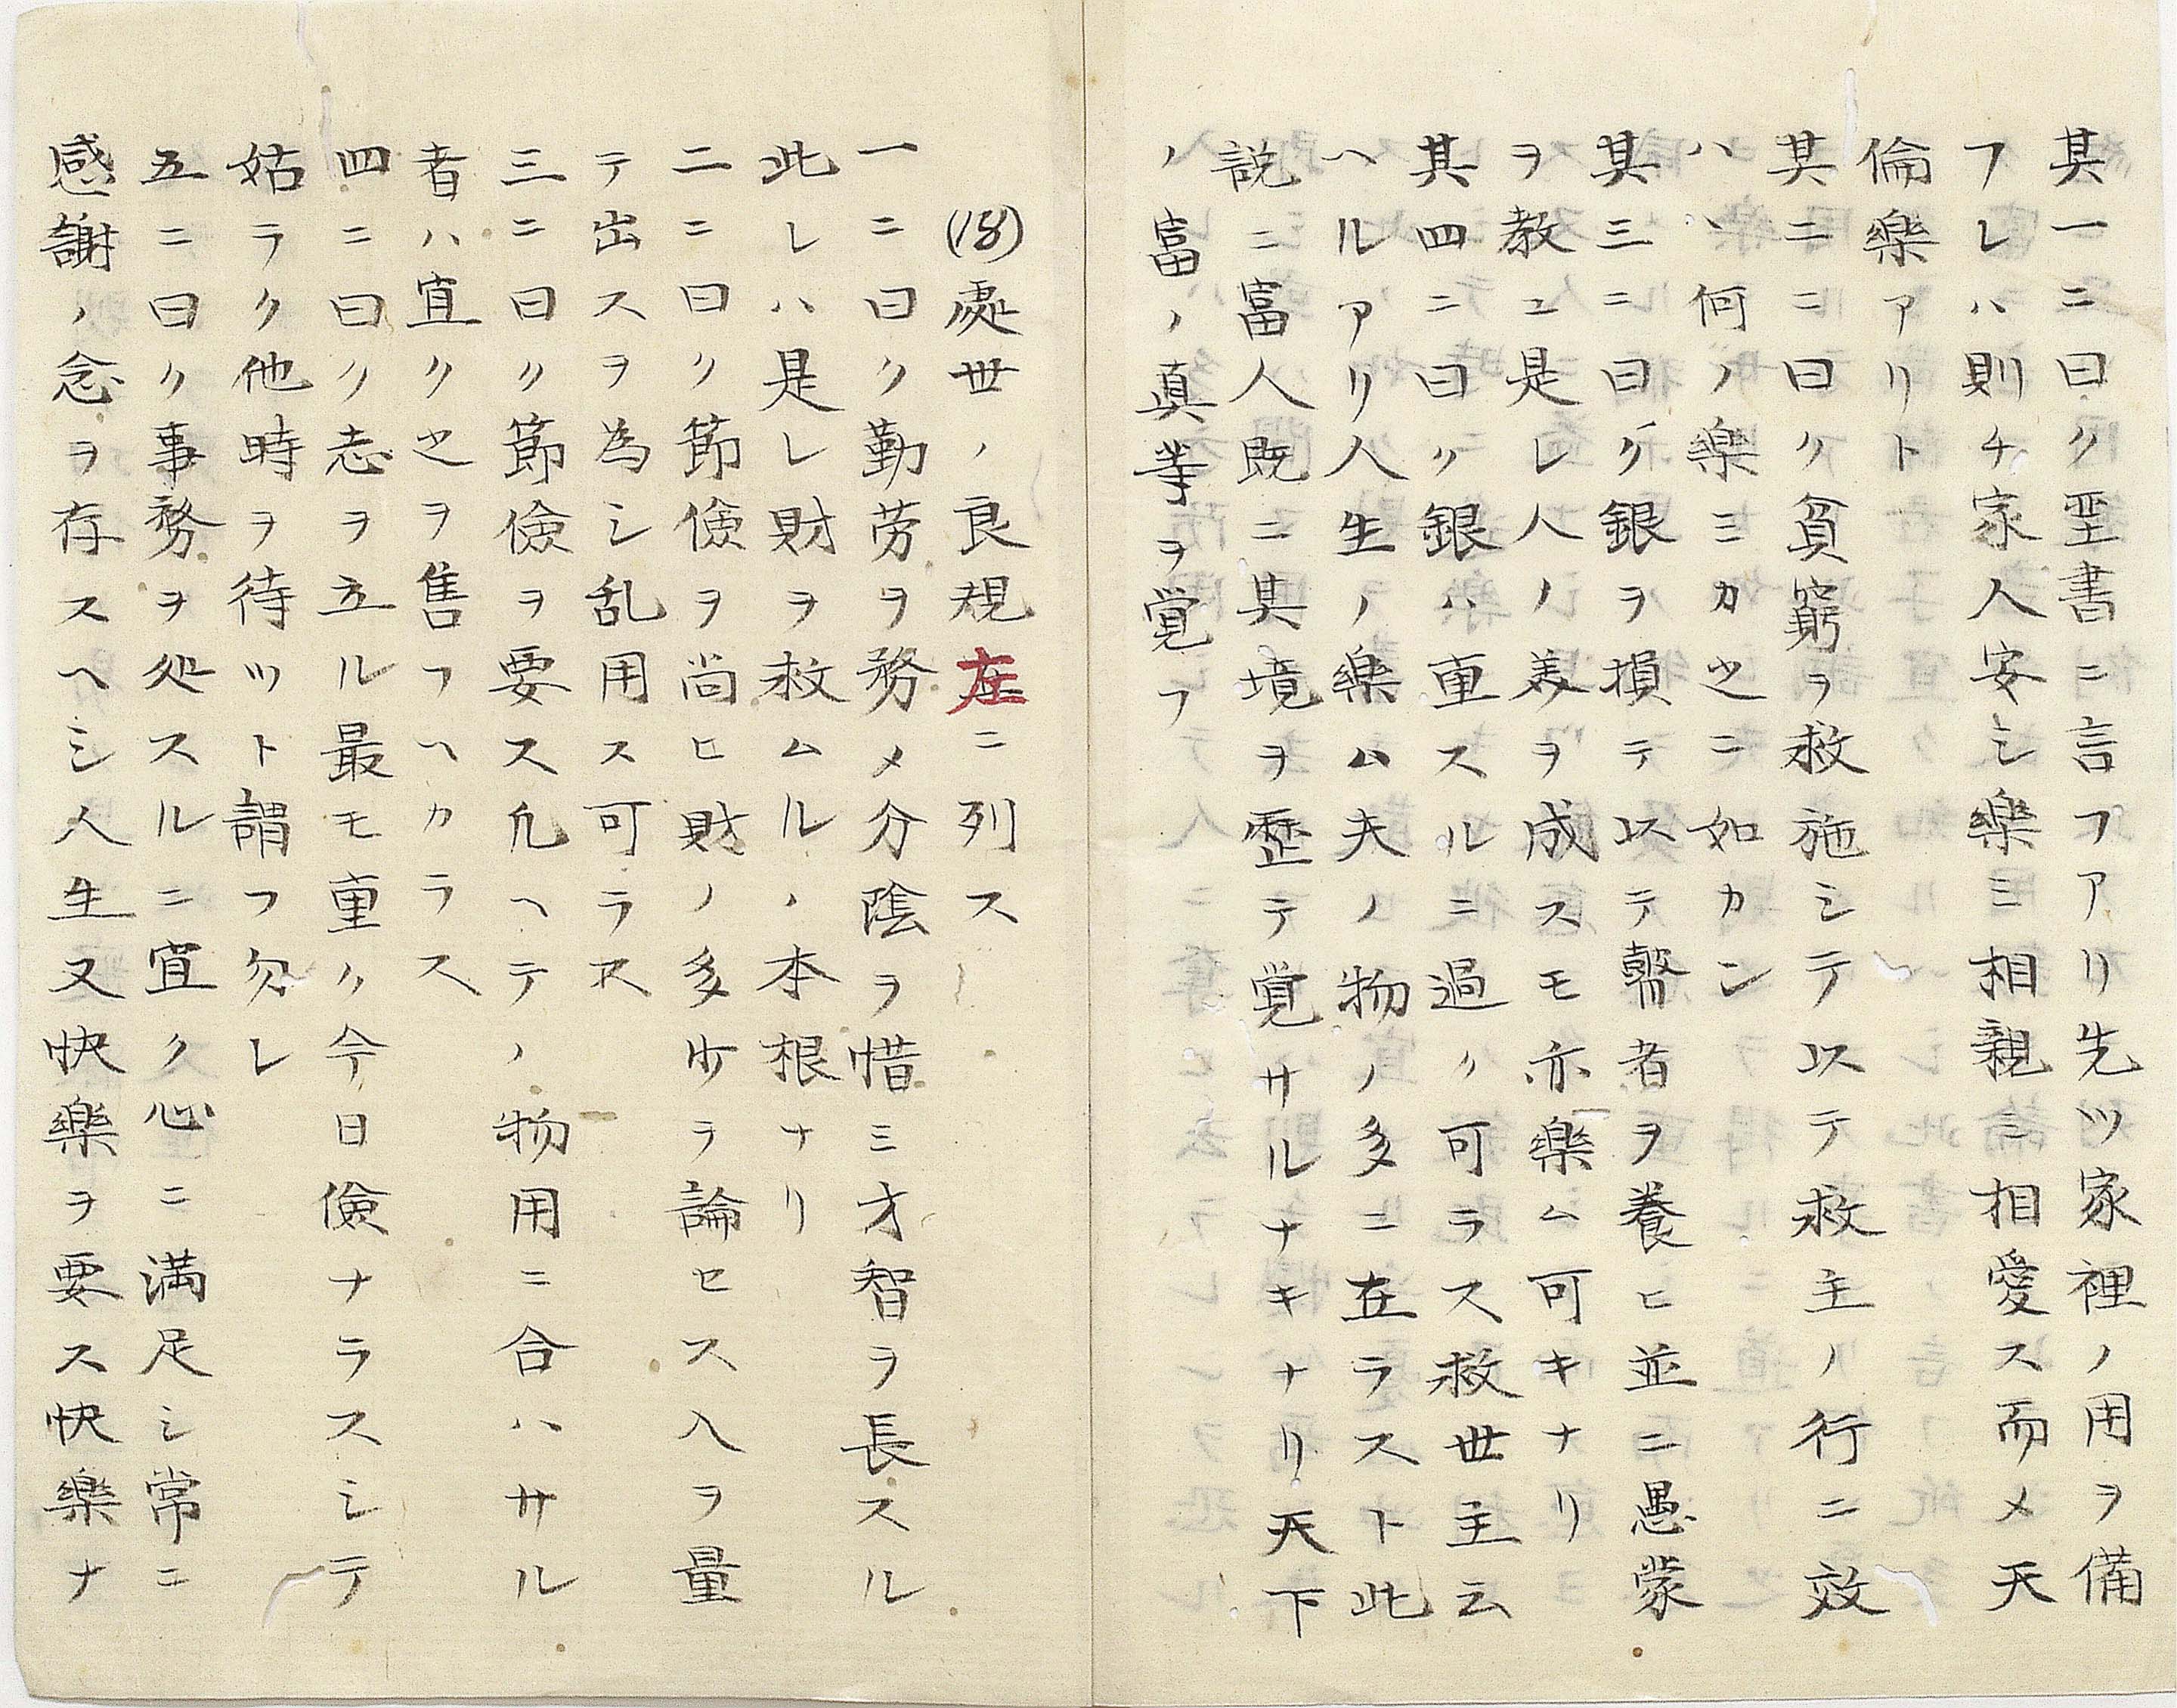 其一ニ曰ク聖書ニ言フアリ先ツ家裡ノ用ヲ備
フレハ則チ家人安シ樂ミ相親ミ相愛ス而メ天
倫樂アリト
其二ニ曰ク貧窮ヲ救施シテ以テ救主ノ行ニ效
ハヽ何ノ楽ミカ之ニ如カン
其三ニ曰ク銀ヲ損テ以テ瞽者ヲ養ヒ並ニ愚蒙
ヲ教ユ是レ人ノ美ヲ成スモ亦樂ム可キナリ
其四ニ曰ク銀ハ重スルニ過ク可ラス救世主云
ヘルアリ人生ノ樂ム夫ノ物ノ多ニ在ラスト此
説ニ富人既ニ其境ヲ歴テ覚サルナキナリ天下
ノ富ノ真等ヲ覚フ
(18)處世ノ良規左ニ列ス
一ニ曰ク勤労ヲ務メ分陰ヲ惜ミ才智ヲ長スル
此レハ是レ財ヲ救ムルノ本根ナリ
二ニ曰ク節儉ヲ尚ヒ財ノ多少ヲ論セス入ヲ量
テ出スヲ為シ乱用ス可ラス
三ニ曰ク節儉ヲ要ス凢ヘテノ物用ニ合ハサル
者ハ宜ク之ヲ售フヘカラス
四ニ曰ク志ヲ立ル最モ重ク今日儉ナラスシテ
姑ラク他時ヲ待ツト謂フ勿レ
五ニ曰ク事務ヲ処スルニ宜ク心ニ満足シ常ニ
感謝ノ念ヲ存スヘシ人生又快樂ヲ要ス快樂ナ